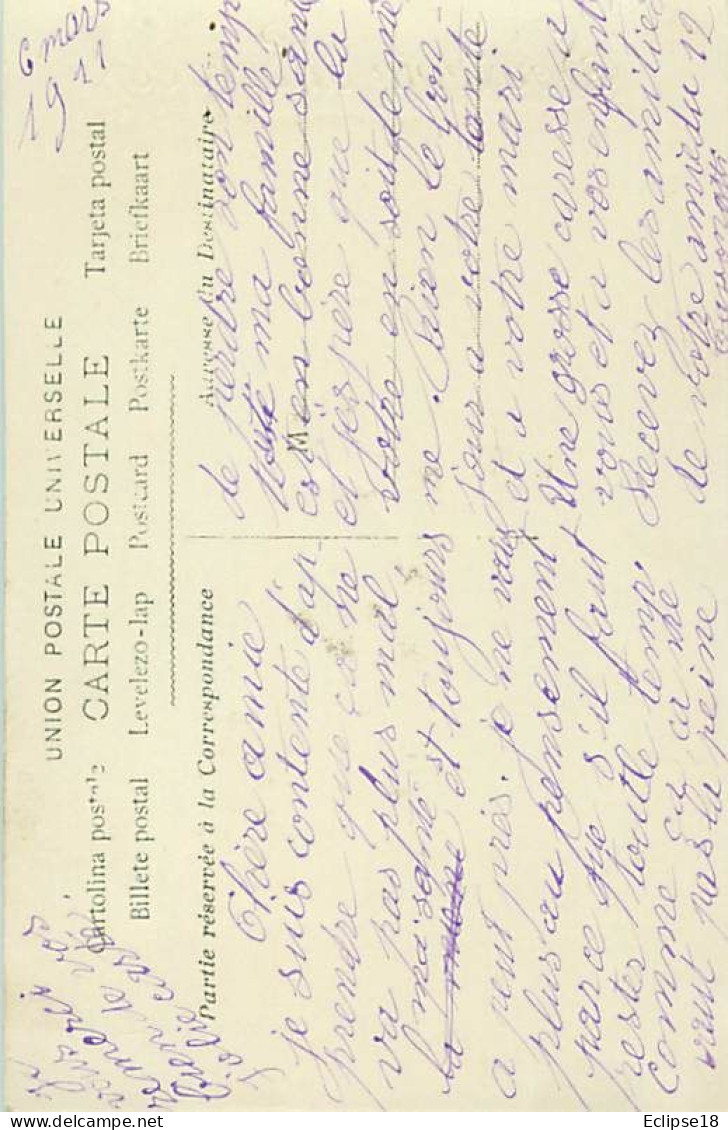 6 mars
1911
UNION POSTALE UNIVERSELLE
CARTE POSTALE
Cartolina postale
Tarjeta postal
Billete postal Levelezo-lap Postcard Postkarte Briefkaart
Partie réservée à la Correspondance
Adresse du Destinataire
M
Chère amie
je suis contente d'ap
prendre que ça ne
va pas plus mal
ma santé est toujours
a peut près. je ne vais
plus au pensement
parce que s'il faut
rester toutte temp
comme ça ça ne
vaut pas la peine
de perdre son temp
toute ma famille
est en bonne santé
et j'espère que la
votre en soit le mê
me. Bien le bon-
jour a votre tante
et a votre mari
Une grosse caresse a
vous et a vos enfants
Recevez les amitiés
de votre amie du 12
Je
vous
remerci
bien de vos
jolie